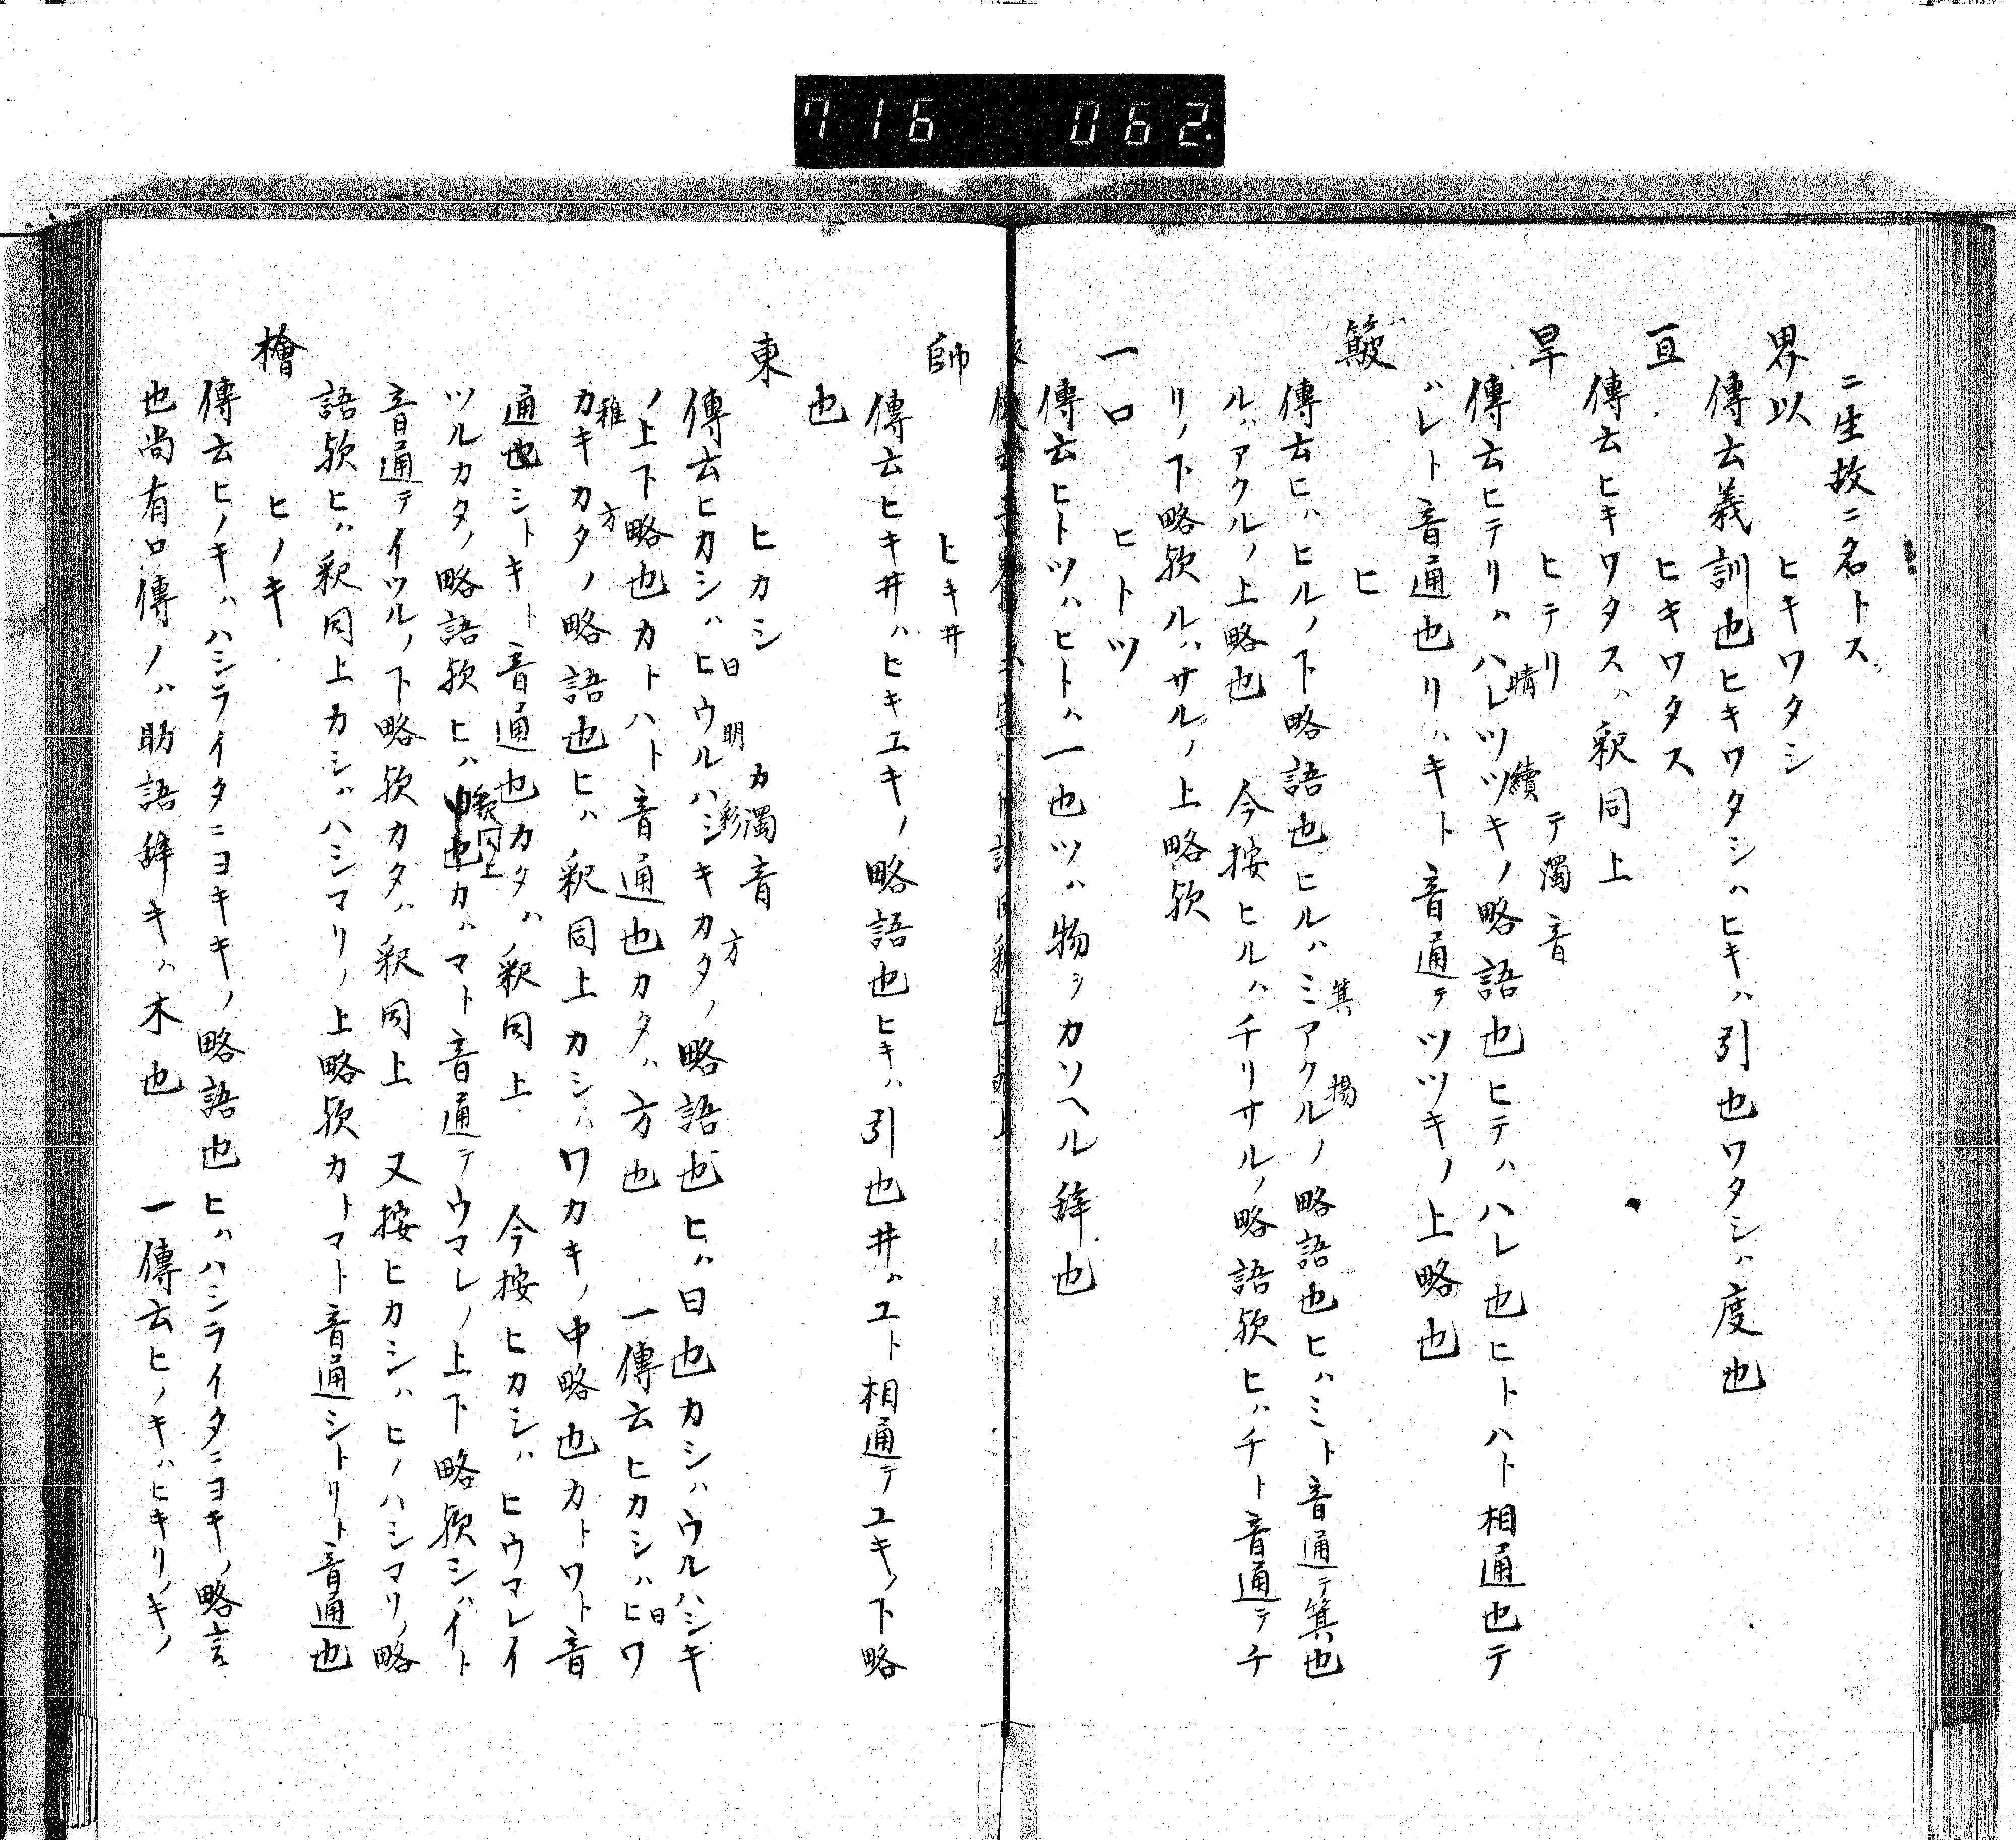 716 062
ニ生故ニ名トス
界以 ヒキワタシ
傳云義訓也ヒキワタシハヒキハ引也ワタシハ度也
亘 ヒキワタス
傳云ヒキワタスハ釈同上
旱 ヒテリ テ濁音
傳云ヒテリハハレツツキノ略語也ヒテハハレ也ヒトハト相通也テ
晴 續
ハレト音通也リハキト音通テツツキノ上略也
簸 ヒ
傳云ヒハヒルノ下略語也ヒルハミアクルノ略語也ヒハミト音通テ箕也
箕 揚
ルハアクルノ上略也 今按ヒルハチリサルノ略語欤ヒハチト音通テチ
リノ下略欤ルハサルノ上略欤
一口 ヒトツ
傳云ヒトツハヒトハ一也ツハ物ヲカソヘル辞也
帥 ヒキ井
傳云ヒキ井ハヒキユキノ略語也ヒキハ引也井ハユト相通テユキノ下略
也
東 ヒカシ カ濁音
傳云ヒカシハヒウルハシキカタノ略語也ヒハ日也カシハウルハシキ
日 明 彩 方
ノ上下略也カトハト音通也カタハ方也 一傳云ヒカシハヒワ
日
カキカタノ略語也ヒハ釈同上カシハワカキノ中略也カトワト音
稚 方
通也シトキト音通也カタハ釈同上 今按ヒカシハヒウマレイ
ツルカタノ略語欤ヒハ釈同上カハマト音通テウマレノ上下略欤シハイト
音通テイツルノ下略欤カタハ釈同上 又按ヒカシハヒノハシマリノ略
語欤ヒハ釈同上カシハハシマリノ上略欤カトマト音通シトリト音通也
檜 ヒノキ
傳云ヒノキハハシライタニヨキキノ略語也ヒハハシライタニヨキノ略言
也尚有口傳ノハ助語辞キハ木也 一傳云ヒノキハヒキリノキノ